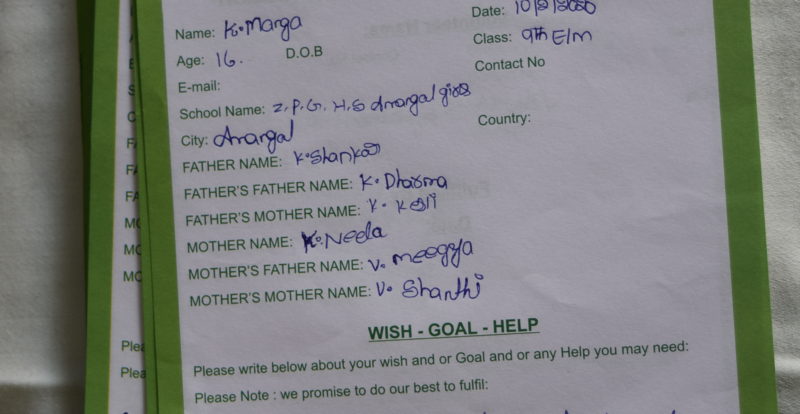 Name: K. Marga Date:
Age: 16. D.O.B Class: 9th E/M
E-mail: Contact No
School Name: Z.P.G.H.S Amangal girls
City: Amangal Country:
FATHER NAME: K. Shankar
FATHER'S FATHER NAME: K. Dharma
FATHER'S MOTHER NAME: K.
MOTHER NAME: K. Neela
MOTHER'S FATHER NAME: V. meegya
MOTHER'S MOTHER NAME: V. Shanthi
WISH - GOAL - HELP
Please write below about your wish and or Goal and or any Help you may need:
Please Note : we promise to do our best to fulfil: